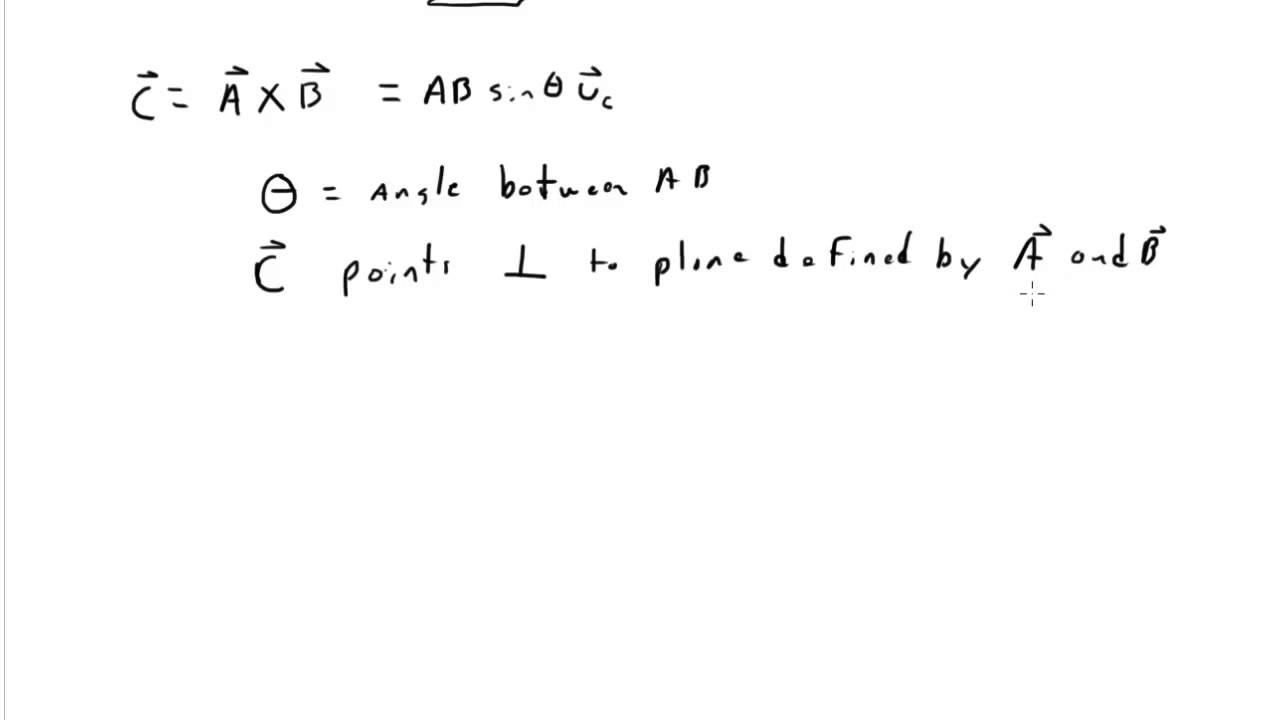 C⃗ = A⃗ × B⃗ = AB sin θ u⃗c
θ = Angle between AB
C⃗ points ⊥ to plane defined by A⃗ and B⃗